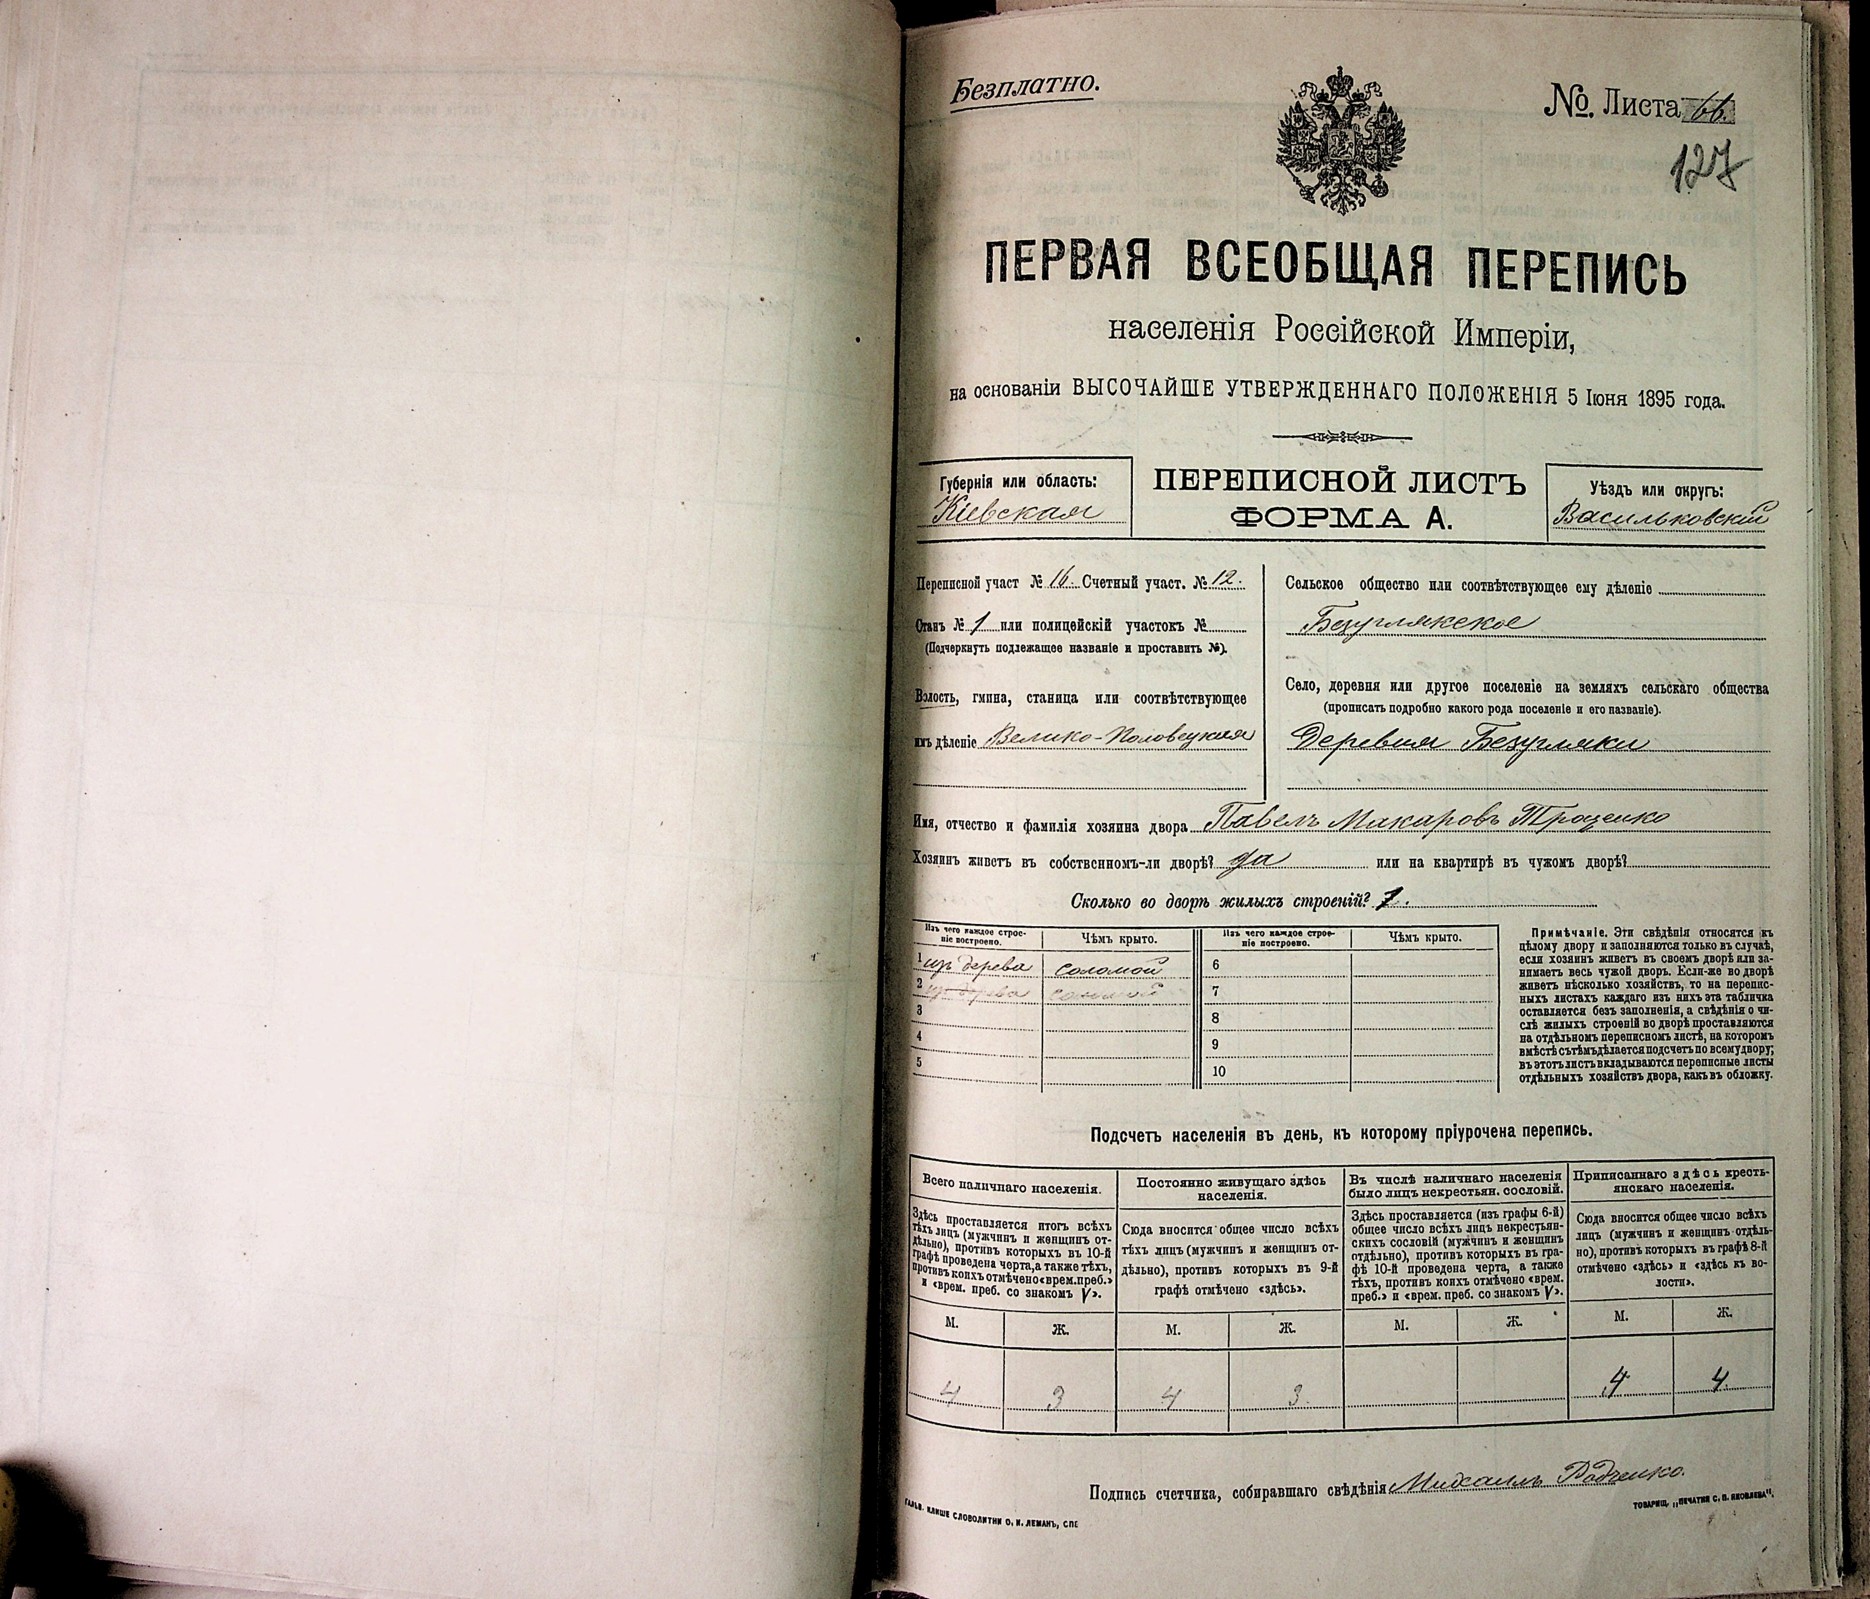 Безплатно.
№. Листа 66.
127
ПЕРВАЯ ВСЕОБЩАЯ ПЕРЕПИСЬ
населенія Россійской Имперіи,
на основаніи ВЫСОЧАЙШЕ УТВЕРЖДЕННАГО ПОЛОЖЕНІЯ 5 Іюня 1895 года.
Губернія или область:
Кіевская
ПЕРЕПИСНОЙ ЛИСТЪ
ФОРМА А.
Уѣздъ или округъ:
Васильковскій
Переписной участ № 16. Счетный участ. № 12.
Станъ № 1 или полицейскій участокъ №
(Подчеркнуть подлежащее названіе и проставить №).
Волость, гмина, станица или соотвѣтствующее
имъ дѣленіе Велико-Половецкая
Сельское общество или соотвѣтствующее ему дѣленіе
Безуглякское
Село, деревня или другое поселеніе на земляхъ сельскаго общества
(прописать подробно какого рода поселеніе и его названіе).
Деревня Безугляки
Имя, отчество и фамилія хозяина двора Павелъ Макаровъ Троценко
Хозяинъ живетъ въ собственномъ-ли дворѣ? да или на квартирѣ въ чужомъ дворѣ?
Сколько во дворѣ жилыхъ строеній? 1.
Изъ чего каждое строе-
ніе построено.
Чѣмъ крыто.
Изъ чего каждое строе-
ніе построено.
Чѣмъ крыто.
1 изъ дерева соломой 6
2 изъ дерева соломой 7
3 8
4 9
5 10
Примѣчаніе. Эти свѣдѣнія относятся къ
цѣлому двору и заполняются только въ случаѣ,
если хозяинъ живетъ въ своемъ дворѣ или за-
нимаетъ весь чужой дворъ. Если-же во дворѣ
живетъ нѣсколько хозяйствъ, то на перепис-
ныхъ листахъ каждаго изъ нихъ эта табличка
оставляется безъ заполненія, а свѣдѣнія о чи-
слѣ жилыхъ строеній во дворѣ проставляются
на отдѣльномъ переписномъ листѣ, на которомъ
вмѣстѣ съ тѣмъ дѣлается подсчетъ по всему двору;
въ этотъ листъ вкладываются переписные листы
отдѣльныхъ хозяйствъ двора, какъ въ обложку.
Подсчетъ населенія въ день, къ которому пріурочена перепись.
Всего наличнаго населенія.
Здѣсь проставляется итогъ всѣхъ
тѣхъ лицъ (мужчинъ и женщинъ от-
дѣльно), противъ которыхъ въ 10-й
графѣ проведена черта, а также тѣхъ,
противъ коихъ отмѣчено «врем. преб.»
и «врем. преб. со знакомъ V».
Постоянно живущаго здѣсь
населенія.
Сюда вносится общее число всѣхъ
тѣхъ лицъ (мужчинъ и женщинъ от-
дѣльно), противъ которыхъ въ 9-й
графѣ отмѣчено «здѣсь».
Въ числѣ наличнаго населенія
было лицъ некрестьян. сословій.
Здѣсь проставляется (изъ графы 6-й)
общее число всѣхъ лицъ некрестьян-
скихъ сословій (мужчинъ и женщинъ
отдѣльно), противъ которыхъ въ гра-
фѣ 10-й проведена черта, а также
тѣхъ, противъ коихъ отмѣчено «врем.
преб.» и «врем. преб. со знакомъ V».
Приписаннаго здѣсь кресть-
янскаго населенія.
Сюда вносится общее число всѣхъ
лицъ (мужчинъ и женщинъ отдѣль-
но), противъ которыхъ въ графѣ 8-й
отмѣчено «здѣсь» и «здѣсь къ во-
лости».
М. Ж. М. Ж. М. Ж. М. Ж.
4 3 4 3. 4 4
Подпись счетчика, собиравшаго свѣдѣнія Михаилъ Радченко.
ГАЛЬВ. КЛИШЕ СЛОВОЛИТНИ О. И. ЛЕМАНЪ, СПБ
ТОВАРИЩ. „ПЕЧАТНЯ С. П. ЯКОВЛЕВА".